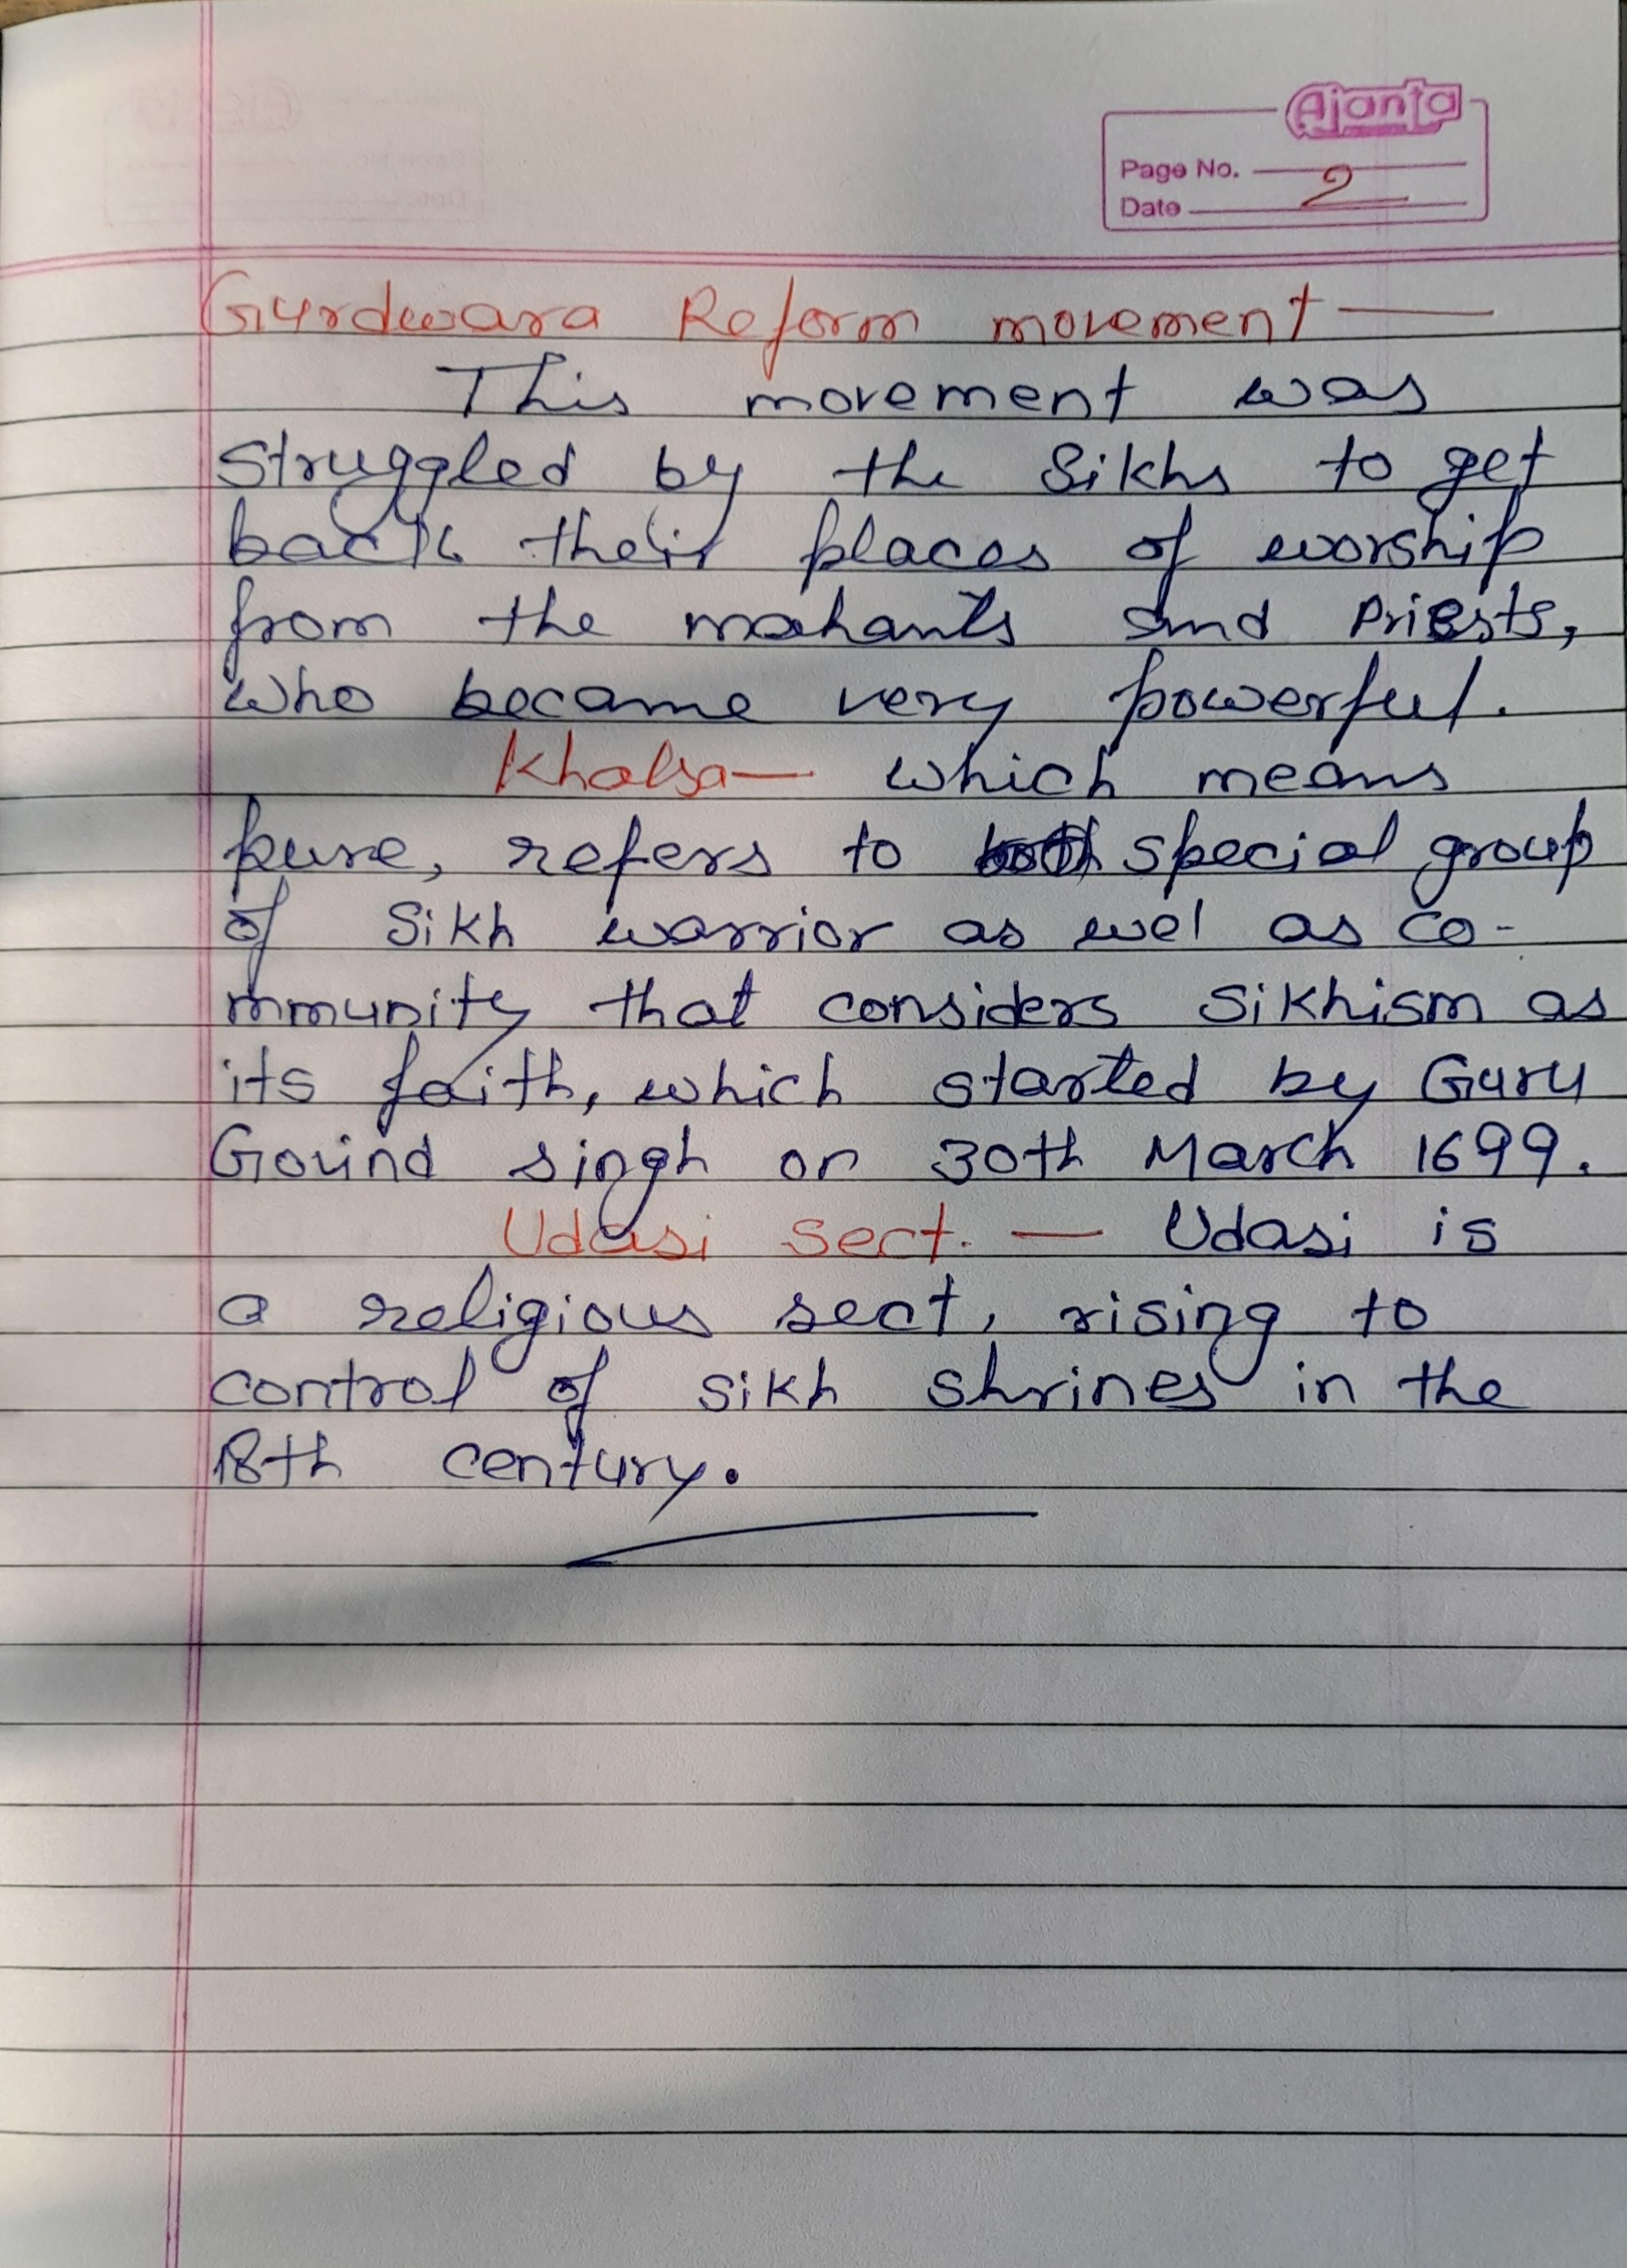 Ajanta
Page No. 2
Date
Gurdwara Reform movement —
This movement was
struggled by the Sikhs to get
back their places of worship
from the mahants and Priests,
who became very powerful.
Khalsa — which means
pure, refers to special group
of Sikh warrior as wel as co-
mmunity that considers Sikhism as
its faith, which started by Guru
Govind singh on 30th March 1699.
Udasi sect. — Udasi is
a religious sect, rising to
control of sikh shrines in the
18th century.